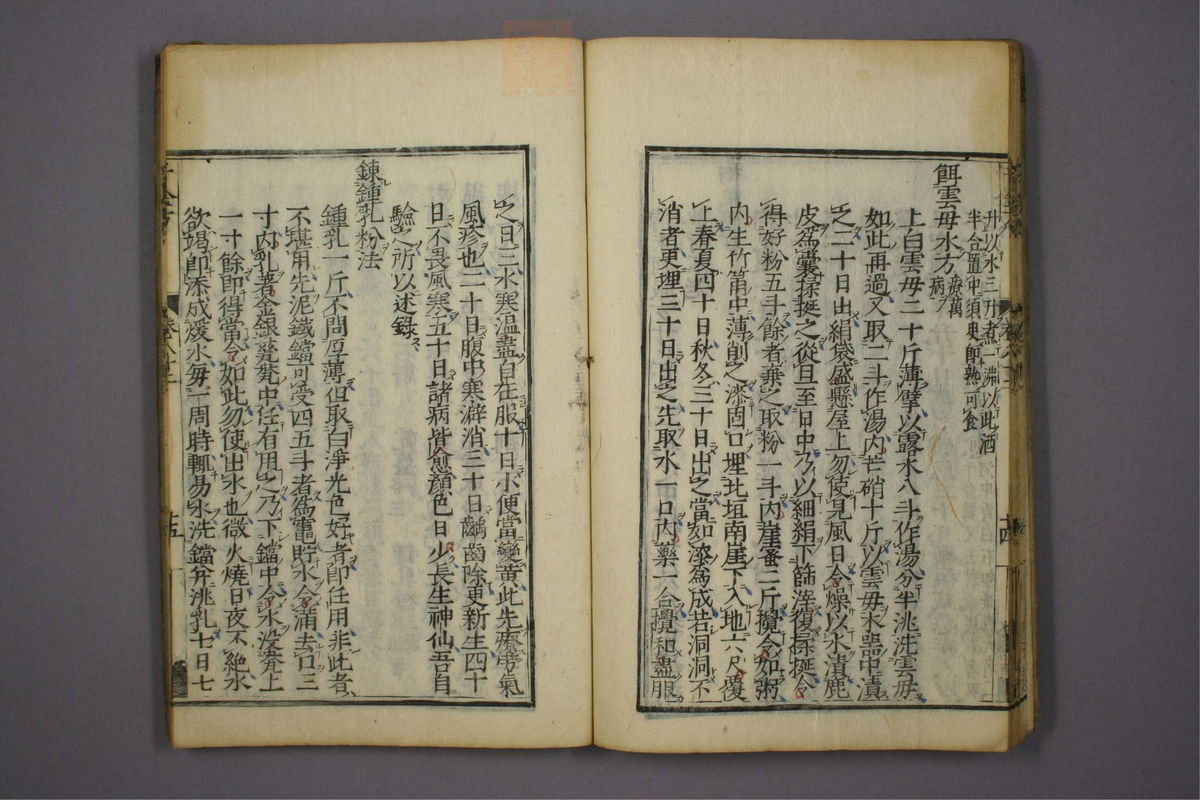 升以水三升煮一沸以此酒
半合置中須臾卽熟可食
餌雲母水方 療萬病
上白雲母二十斤薄擘以露水八斗作湯分半洮洗雲母
如此再過又取二斗作湯內芒硝十斤以雲母木器中漬
之二十日出絹袋盛懸屋上勿使見風日令燥以水漬鹿
皮爲囊揉挺之從旦至日中乃以細絹下篩滓復揉挻令
得好粉五斗餘者棄之取粉一斗內崖蜜二斤攪令如粥
內生竹筩中薄削之漆固口埋北垣南崖下入地六尺覆
上春夏四十日秋冬三十日出之當如漆爲成若洞洞不
消者更埋三十日出之先取水一口內藥一合攪和盡服
之日三水寒温盡自在服十日小便當變黃此先療勞氣
風疹也二十日腹中寒澼消三十日齲齒除更新生四十
日不畏風寒五十日諸病皆愈顏色日少長生神仙吾自
驗之所以述錄
鍊鍾乳粉法
鍾乳一斤不問厚薄但取白淨光色好者卽任用非此者
不堪用先泥鐵鐺可受四五斗者爲竈貯水令滿去口三
寸內乳著金銀瓷盆中任有用之乃下鐺中令水没盆上
一寸餘卽得當令如此勿使出水也微火燒日夜不絕水
欲竭卽添成煖水每一周時輒易水洗鐺幷洮乳七日七
十四
十五